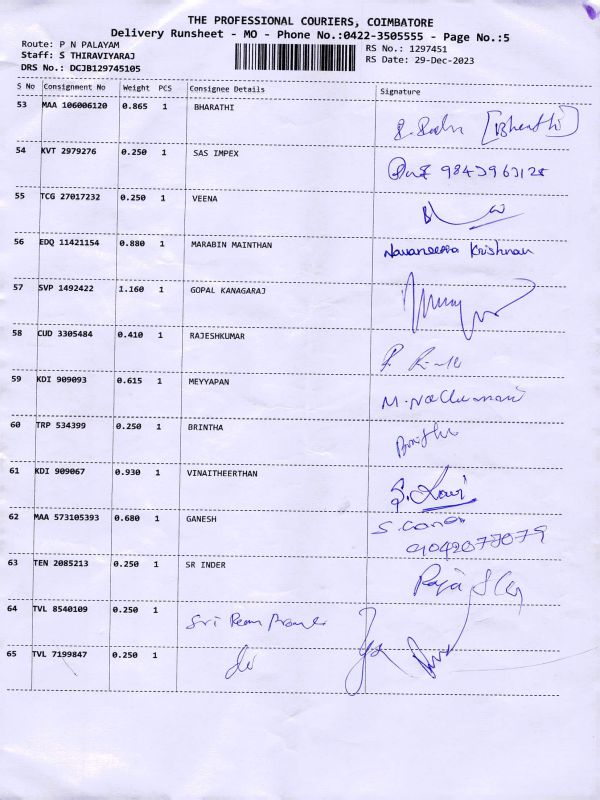 THE PROFESSIONAL COURIERS, COIMBATORE
Delivery Runsheet - MO - Phone No.:0422-3505555 - Page No.:5
Route: P N PALAYAM
RS No.: 1297451
Staff: S THIRAVIYARAJ
RS Date: 29-Dec-2023
DRS No.: DCJB129745105
S No Consignment No Weight PCS Consignee Details Signature
53 MAA 106006120 0.865 1 BHARATHI
[Bharathi]
54 KVT 2979276 0.250 1 SAS IMPEX
9843963128
55 TCG 27017232 0.250 1 VEENA
56 EDQ 11421154 0.880 1 MARABIN MAINTHAN
Navaneetha Krishnan
57 SVP 1492422 1.160 1 GOPAL KANAGARAJ
58 CUD 3305484 0.410 1 RAJESHKUMAR
59 KDI 909093 0.615 1 MEYYAPAN
60 TRP 534399 0.250 1 BRINTHA
61 KDI 909067 0.930 1 VINAITHEERTHAN
62 MAA 573105393 0.680 1 GANESH
63 TEN 2085213 0.250 1 SR INDER
Raja
64 TVL 8540109 0.250 1 Sri Ram
65 TVL 7199847 0.250 1 do